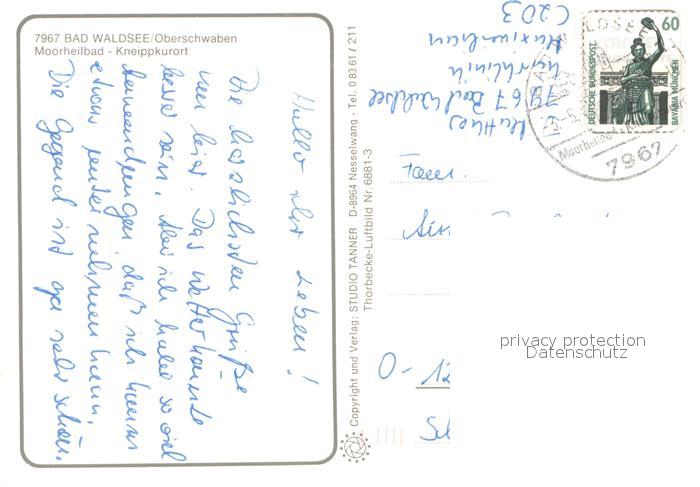 7967 BAD WALDSEE/Oberschwaben
Moorheilbad - Kneippkurort
Hallo ihr Lieben!
Die herzlichsten Grüße
von hier. Das Wetter könnte
besser sein. Aber ich habe so viel
Anwendungen, daß ich kaum
etwas unternehmen kann.
Die Gegend ist ja sehr schön.
Copyright und Verlag: STUDIO TANNER D-8964 Nesselwang - Tel. 0 83 61 / 211
Thorbecke-Luftbild Nr 6881-3
7967 Bad Waldsee
C 203
60
DEUTSCHE BUNDESPOST
BAVARIA MÜNCHEN
7967
Fam.
O-12
privacy protection
Datenschutz